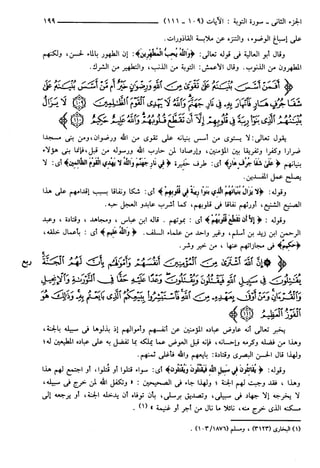 الجزء الثاني - سورة التوبة : الآيات (١٠٩ - ١١١) ١٩٩
على إسباغ الوضوء، والتنزه عن ملابسة القاذورات.
وقال أبو العالية في قوله تعالى: ﴿وَاللَّهُ يُحِبُّ الْمُطَّهِّرِينَ﴾: إن الطهور بالماء لحسن، ولكنهم
المطهرون من الذنوب. وقال الأعمش: التوبة من الذنب، والتطهير من الشرك.
أَفَمَنْ أَسَّسَ بُنْيَانَهُ عَلَى تَقْوَى مِنَ اللَّهِ وَرِضْوَانٍ خَيْرٌ أَم مَّنْ أَسَّسَ بُنْيَانَهُ عَلَى
شَفَا جُرُفٍ هَارٍ فَانْهَارَ بِهِ فِي نَارِ جَهَنَّمَ وَاللَّهُ لَا يَهْدِي الْقَوْمَ الظَّالِمِينَ ﴿١٠٩﴾ لَا يَزَالُ
بُنْيَانُهُمُ الَّذِي بَنَوْا رِيبَةً فِي قُلُوبِهِمْ إِلَّا أَن تَقَطَّعَ قُلُوبُهُمْ وَاللَّهُ عَلِيمٌ حَكِيمٌ ﴿١١٠﴾
يقول تعالى: لا يستوي من أسس بنيانه على تقوى من الله ورضوان، ومن بنى مسجدا
ضرارا وكفرا وتفريقا بين المؤمنين، وإرصادا لمن حارب الله ورسوله من قبل، فإنما بنى هؤلاء
بنيانهم ﴿عَلَى شَفَا جُرُفٍ هَارٍ﴾ أي: طرف حفيرة ﴿فِي نَارِ جَهَنَّمَ وَاللَّهُ لَا يَهْدِي الْقَوْمَ الظَّالِمِينَ﴾ أي: لا
يصلح عمل المفسدين.
وقوله: ﴿لَا يَزَالُ بُنْيَانُهُمُ الَّذِي بَنَوْا رِيبَةً فِي قُلُوبِهِمْ﴾ أي: شكا ونفاقا بسبب إقدامهم على هذا
الصنيع الشنيع، أورثهم نفاقا في قلوبهم، كما أشرب عابدو العجل حبه.
وقوله: ﴿إِلَّا أَن تَقَطَّعَ قُلُوبُهُمْ﴾ أي: بموتهم. قاله ابن عباس، ومجاهد، وقتادة، وعبد
الرحمن ابن زيد بن أسلم، وغير واحد من علماء السلف. ﴿وَاللَّهُ عَلِيمٌ﴾ أي: بأعمال خلقه،
﴿حَكِيمٌ﴾ في مجازاتهم عنها، من خير وشر.
إِنَّ اللَّهَ اشْتَرَى مِنَ الْمُؤْمِنِينَ أَنفُسَهُمْ وَأَمْوَالَهُم بِأَنَّ لَهُمُ الْجَنَّةَ ربع
يُقَاتِلُونَ فِي سَبِيلِ اللَّهِ فَيَقْتُلُونَ وَيُقْتَلُونَ وَعْدًا عَلَيْهِ حَقًّا فِي التَّوْرَاةِ وَالْإِنجِيلِ
وَالْقُرْآنِ وَمَنْ أَوْفَى بِعَهْدِهِ مِنَ اللَّهِ فَاسْتَبْشِرُوا بِبَيْعِكُمُ الَّذِي بَايَعْتُم بِهِ وَذَلِكَ هُوَ
الْفَوْزُ الْعَظِيمُ ﴿١١١﴾
يخبر تعالى أنه عاوض عباده المؤمنين عن أنفسهم وأموالهم إذ بذلوها في سبيله بالجنة،
وهذا من فضله وكرمه وإحسانه، فإنه قبل العوض عما يملكه بما تفضل به على عباده المطيعين له؛
ولهذا قال الحسن البصري وقتادة: بايعهم والله فأغلى ثمنهم.
وقوله: ﴿يُقَاتِلُونَ فِي سَبِيلِ اللَّهِ فَيَقْتُلُونَ وَيُقْتَلُونَ﴾ أي: سواء قتلوا أو قُتلوا، أو اجتمع لهم هذا
وهذا، فقد وجبت لهم الجنة؛ ولهذا جاء في الصحيحين: «وتكفل الله لمن خرج في سبيله،
لا يخرجه إلا جهاد في سبيلي، وتصديق برسلي، بأن توفاه أن يدخله الجنة، أو يرجعه إلى
مسكنه الذي خرج منه، نائلا ما نال من أجر أو غنيمة» (١).
(١) البخاري (٣١٢٣)، ومسلم (١٠٣/١٨٧٦).